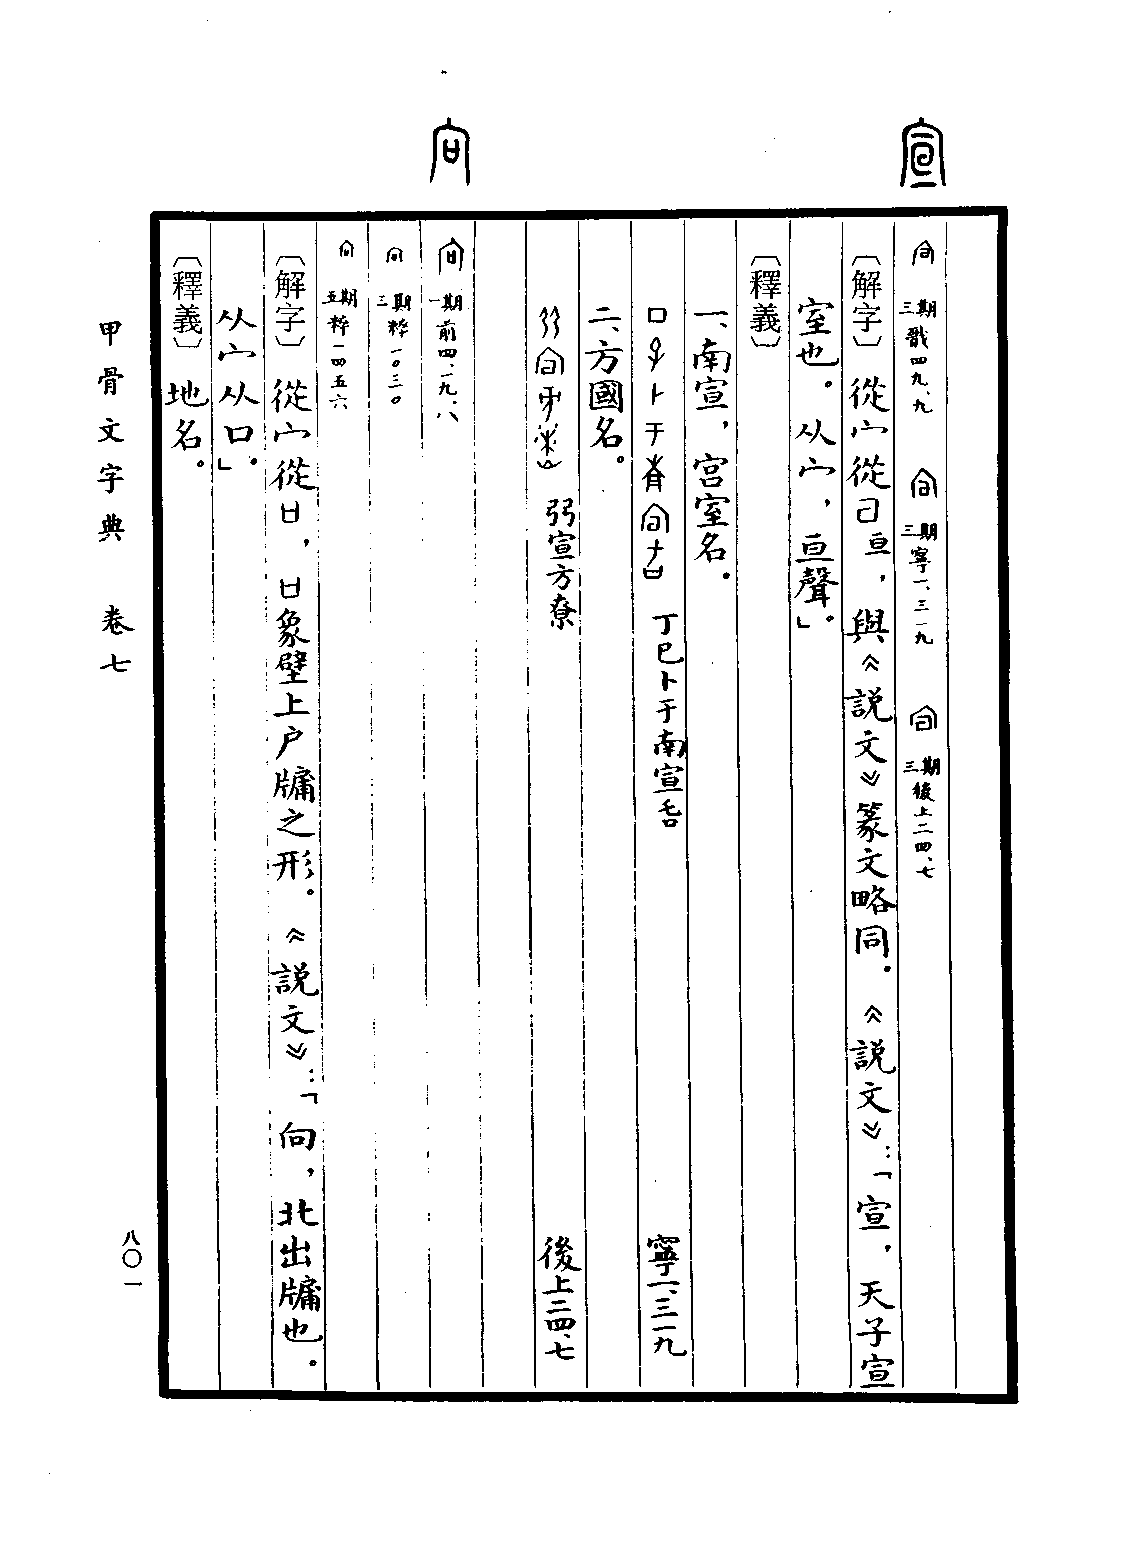 宣
三期戩四九.九 三期寧一.三一九 三期後上二四.七
〔解字〕從宀從亘，與《説文》篆文略同.《説文》：「宣，天子宣
室也。从宀，亘聲。」
〔釋義〕
一、南宣，宫室名.
丁巳卜于南宣𠯑 寧一.三一九
二、方國名。
弜宣方尞 後上二四.七
向
一期前四.一九.八
三期粹一〇三〇
五期粹一四五六
〔解字〕從宀從口，口象壁上户牖之形。《説文》：「向，北出牖也.
从宀从口。」
〔釋義〕 地名。
甲骨文字典 卷七
八〇一